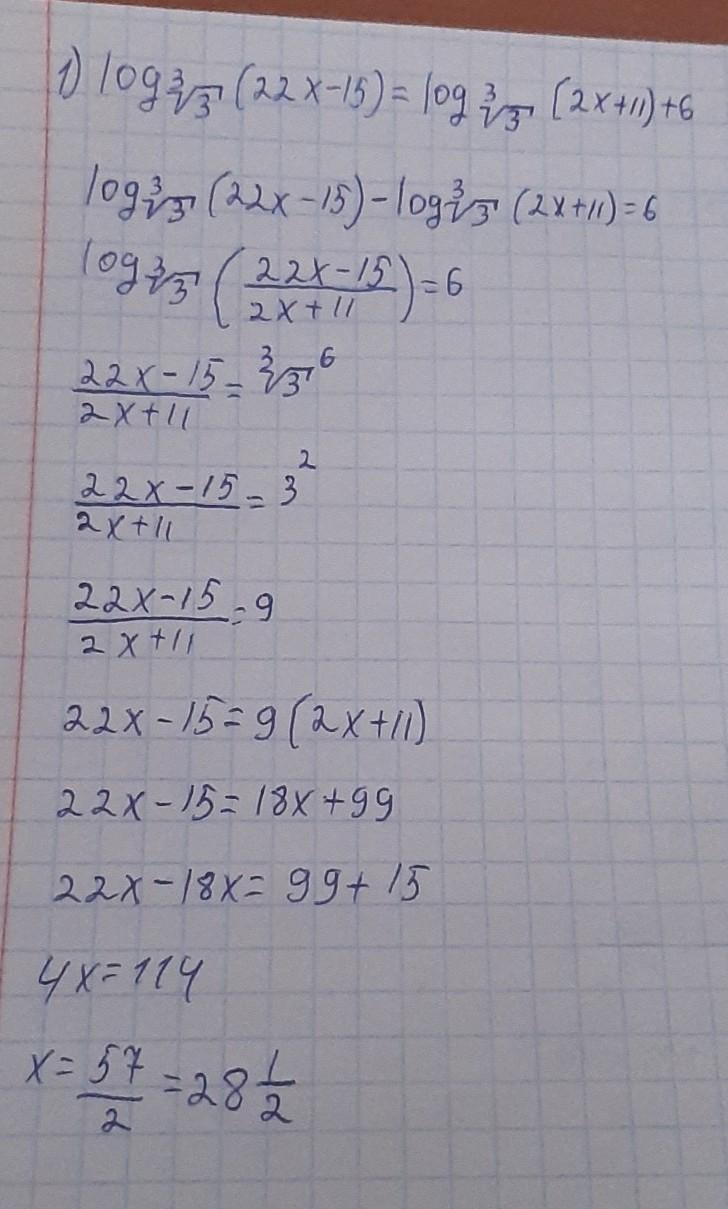 1) log ∛3 (22x-15) = log ∛3 (2x+11)+6
log ∛3 (22x-15) - log ∛3 (2x+11) = 6
log ∛3 ((22x-15)/(2x+11)) = 6
(22x-15)/(2x+11) = ∛3⁶
(22x-15)/(2x+11) = 3²
(22x-15)/(2x+11) = 9
22x-15 = 9(2x+11)
22x-15 = 18x+99
22x-18x = 99+15
4x = 114
x = 57/2 = 28 1/2